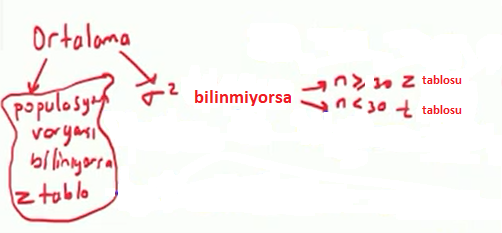 Ortalama
populasyon
varyası
biliniyorsa
z tablo
σ² bilinmiyorsa
n ≥ 30 z tablosu
n < 30 t tablosu